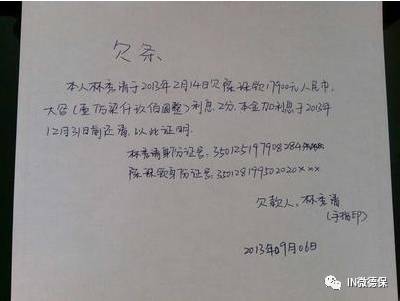 欠条
本人林秀清于2013年2月14日欠陈珠领17900元人民币,
大写(壹万柒仟玖佰圆整)利息2分,本金加利息于2013年
12月31日前还清,以此证明。
林秀清身份证号:350125197908284
陈珠领身份证号:35012819950 2020xxx
欠款人:林秀清
(手指印)
2013年09月06日
IN微德保